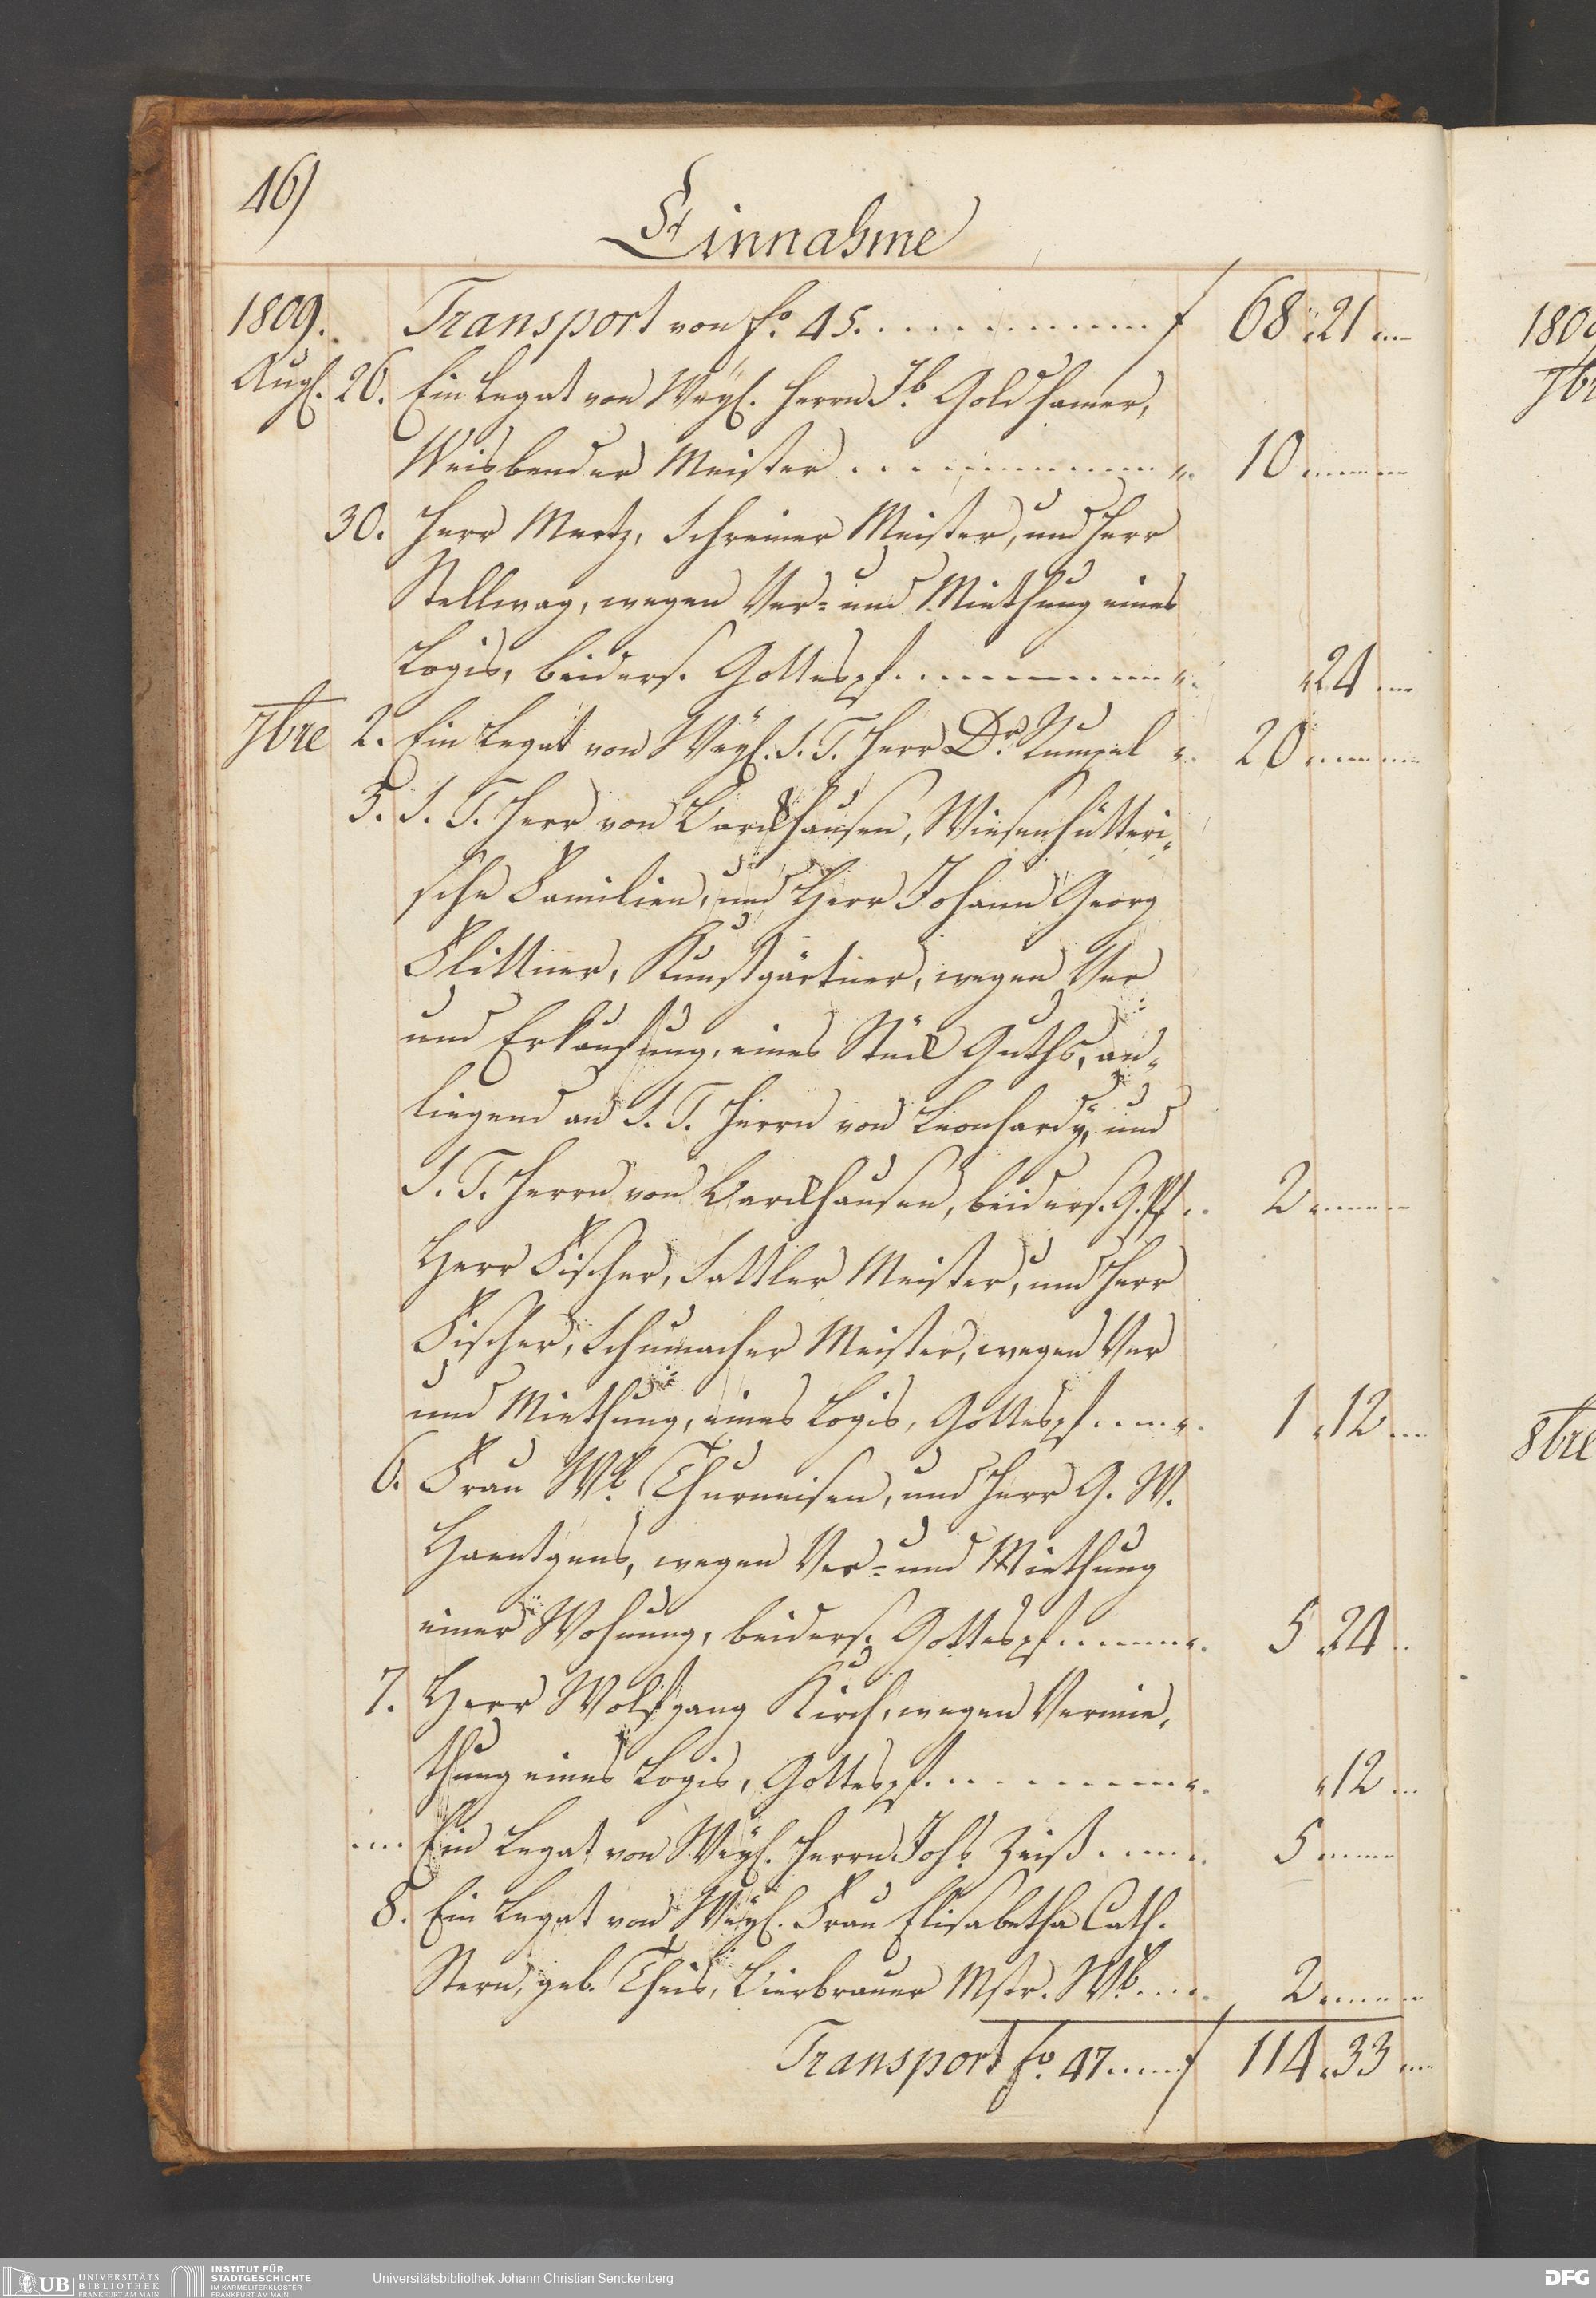 46)
Einnahme
1809. Transport von fo. 45. . . . . . . . . . . . . f 68 „ 21 „ —
Augſ. 26. Ein Legat von Weyl. Herrn Jb. Goldhamer,
Weisbender Meister . . . . . . . . . . . „ 10 „ — „ —
30. Herr Mertz, Schreiner Meister, und Herr
Stellwag, wegen Ver= und Miethung eines
Logis, beiders. Gottespf. . . . . . . . . . „ „ 24 „ —
7bre 2. Ein Legat von Weyl. S. T. Herr Dr. Rumpel „ 20 „ — „ —
5. S. T. Herr von Barckhausen, Wiesenhütteri„
sche Familien, und Herr Johann Georg
Flittner, Kunstgärtner, wegen Ver
und Erkaufung, eines Stück Guths, an„
liegend an S. T. Herrn von Leonhardy, und
S. T. Herrn von Barckhausen, beiders. G. Pf. . . 2 „ — „ —
Herr Fischer, Sattler Meister, und Herr
Fischer, Schumacher Meister, wegen Ver
und Miethung, eines Logis, Gottespf. . . . „ 1 „ 12 „ —
6. Frau Wb. Thurneisen, und Herr G. W.
Haentgens, wegen Ver= und Miethung
einer Wohnung, beiders. Gottespf. . . . . „ 5 „ 24 . .
7. Herr Wolfgang Kirch, wegen Vermie„
thung eines Logis, Gottespf. . . . . . . . „ „ 12 . .
. . . . Ein Legat von Weyl. Herrn Johs. Zeiß . . . . „ 5 „ — „ —
8. Ein Legat von Weyl. Frau Elisabetha Cath.
Stern, geb. Theis, Bierbrauer Mstr. Wb. . . . 2 „ — „ —
Transport fo. 47. . . . . f 114 „ 33 „ —
180
7br
8bre
UB UNIVERSITÄTS
BIBLIOTHEK
FRANKFURT AM MAIN
INSTITUT FÜR
STADTGESCHICHTE
IM KARMELITERKLOSTER
FRANKFURT AM MAIN
Universitätsbibliothek Johann Christian Senckenberg
DFG